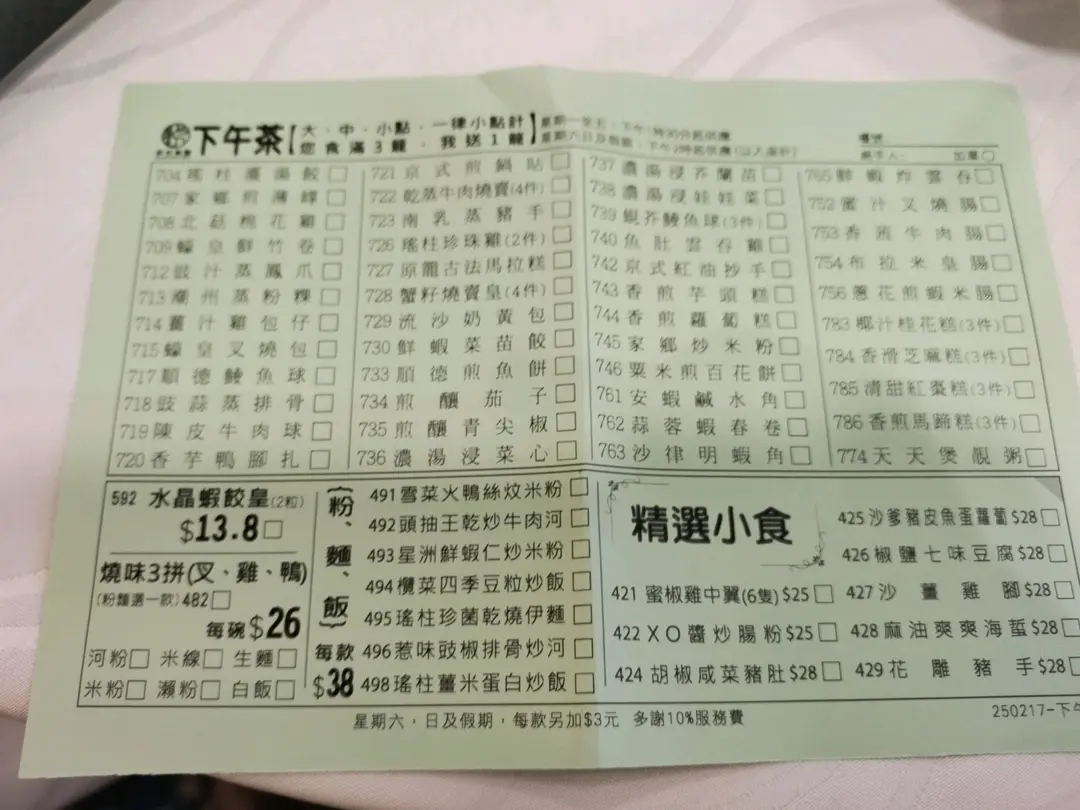 下午茶
大、中、小點，一律小點計
您食滿3籠，我送1籠
檯號
經手人: 加單
704 瑤柱灌湯餃
707 家鄉煎薄罉
708 北菇棉花雞
709 蠔皇鮮竹卷
712 豉汁蒸鳳爪
713 潮州蒸粉粿
714 薑汁雞包仔
715 蠔皇叉燒包
717 順德鯪魚球
718 豉蒜蒸排骨
719 陳皮牛肉球
720 香芋鴨腳扎
721 京式煎鍋貼
722 乾蒸牛肉燒賣(4件)
723 南乳蒸豬手
726 瑤柱珍珠雞(2件)
727 原籠古法馬拉糕
728 蟹籽燒賣皇(4件)
729 流沙奶黃包
730 鮮蝦菜苗餃
733 順德煎魚餅
734 煎釀茄子
735 煎釀青尖椒
736 濃湯浸菜心
737 濃湯浸芥蘭苗
738 濃湯浸娃娃菜
739 蜆芥鯪魚球(3件)
740 魚肚雲吞雞
742 京式紅油抄手
743 香煎芋頭糕
744 香煎蘿蔔糕
745 家鄉炒米粉
746 粟米煎百花餅
761 安蝦鹹水角
762 蒜蓉蝦春卷
763 沙律明蝦角
765 鮮蝦炸雲吞
752 蜜汁叉燒腸
753 香茜牛肉腸
754 布拉米皇腸
756 蔥花煎蝦米腸
783 椰汁桂花糕(3件)
784 香滑芝麻糕(3件)
785 清甜紅棗糕(3件)
786 香煎馬蹄糕(3件)
774 天天煲靚粥
592 水晶蝦餃皇(2粒)
$13.8
燒味3拼(叉、雞、鴨)
(粉麵選一款) 482
每碗$26
河粉 米線 生麵
米粉 瀨粉 白飯
(粉、麵、飯)
每款
$38
491 雪菜火鴨絲炆米粉
492 頭抽王乾炒牛肉河
493 星洲鮮蝦仁炒米粉
494 欖菜四季豆粒炒飯
495 瑤柱珍菌乾燒伊麵
496 惹味豉椒排骨炒河
498 瑤柱薑米蛋白炒飯
精選小食
421 蜜椒雞中翼(6隻) $25
422 XO醬炒腸粉 $25
424 胡椒咸菜豬肚 $28
425 沙爹豬皮魚蛋蘿蔔 $28
426 椒鹽七味豆腐 $28
427 沙薑雞腳 $28
428 麻油爽爽海蜇 $28
429 花雕豬手 $28
星期六，日及假期，每款另加$3元 多謝10%服務費
250217-下午